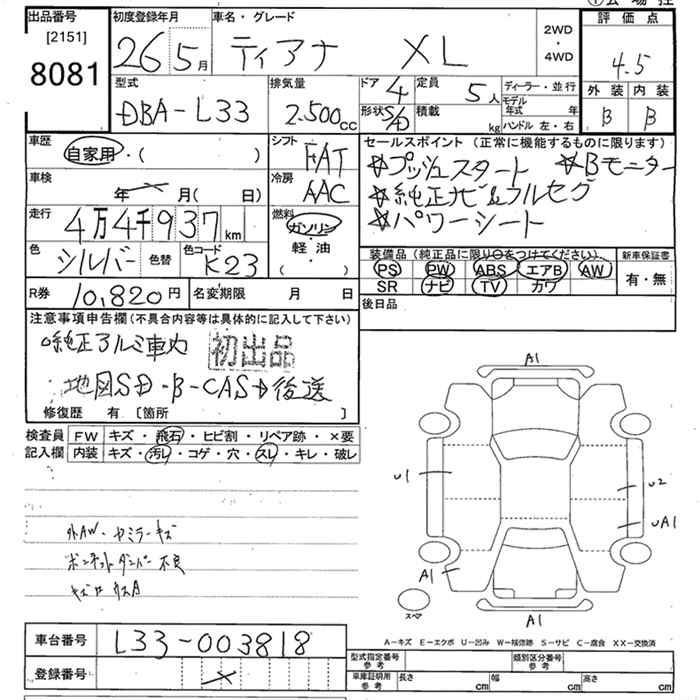 出品番号 初度登録年月 車名・グレード
[2151]
8081
26 5月 ティアナ XL
2WD
・
4WD
評価点
4.5
外装 内装
B B
型式 排気量 ドア 定員
DBA-L33 2.500cc 4 5人
形状 積載 kg
ディーラー・並行
モデル年式 年
ハンドル 左・右
車歴 自家用・( )
シフト FAT
車検 年 月( 日)
冷房 AAC
走行 4万4千937km
燃料 ガソリン
軽油
( ・ )
色 シルバー 色替 色コード K23
セールスポイント(正常に機能するものに限ります)
☆プッシュスタート ☆Bモニター
☆純正ナビ&フルセグ
☆パワーシート
装備品(純正品に限り○をつけてください)
PS PW ABS エアB AW
SR ナビ TV カワ
新車保証書
有・無
後日品
R券 10,820円 名変期限 月 日
注意事項申告欄(不具合内容等は具体的に記入して下さい)
純正アルミ車内 初出品
地図SD・B-CAS 後送
修復歴 有 [箇所 ]
検査員 FW キズ・飛石・ヒビ割・リペア跡・×要
記入欄 内装 キズ・汚レ・コゲ・穴・スレ・キレ・破レ
外AW・ミラーキズ
ボンネットダンパー不良
A1
U1
U2
UA1
A1
スペア
A1
A-キズ E-エクボ U-凹み W-補修跡 S-サビ C-腐食 XX-交換済
車台番号 L33-003818
登録番号
型式指定番号 参考 類別区分番号 参考
車庫証明用 参考 長さ cm 幅 cm 高さ cm